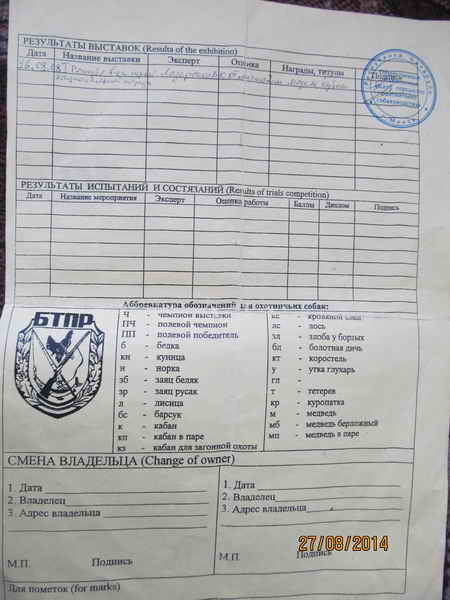 РЕЗУЛЬТАТЫ ВЫСТАВОК (Results of the exhibition)
Дата Название выставки Эксперт Оценка Награды, титулы Подпись
РЕЗУЛЬТАТЫ ИСПЫТАНИЙ И СОСТЯЗАНИЙ (Results of trials competition)
Дата Название мероприятия Эксперт Оценка работы Баллы Диплом Подпись
Аббревиатура обозначений для охотничьих собак:
БТПР
Ч - чемпион выставки
ПЧ - полевой чемпион
ПП - полевой победитель
б - белка
кн - куница
н - норка
зб - заяц беляк
зр - заяц русак
л - лисица
бс - барсук
к - кабан
кп - кабан в паре
кз - кабан для загонной охоты
кс - кровяной след
лс - лось
зл - злоба у борзых
бл - болотная дичь
кт - коростель
у - утка глухарь
гл -
т - тетерев
кр - куропатка
м - медведь
мб - медведь берложный
мп - медведь в паре
СМЕНА ВЛАДЕЛЬЦА (Change of owner)
1. Дата
2. Владелец
3. Адрес владельца
М.П. Подпись
1. Дата
2. Владелец
3. Адрес владельца
М.П. Подпись
Для пометок (for marks)
27/08/2014